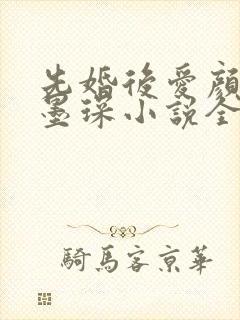 先婚後愛顏
墨琛小說全
騎馬客京華